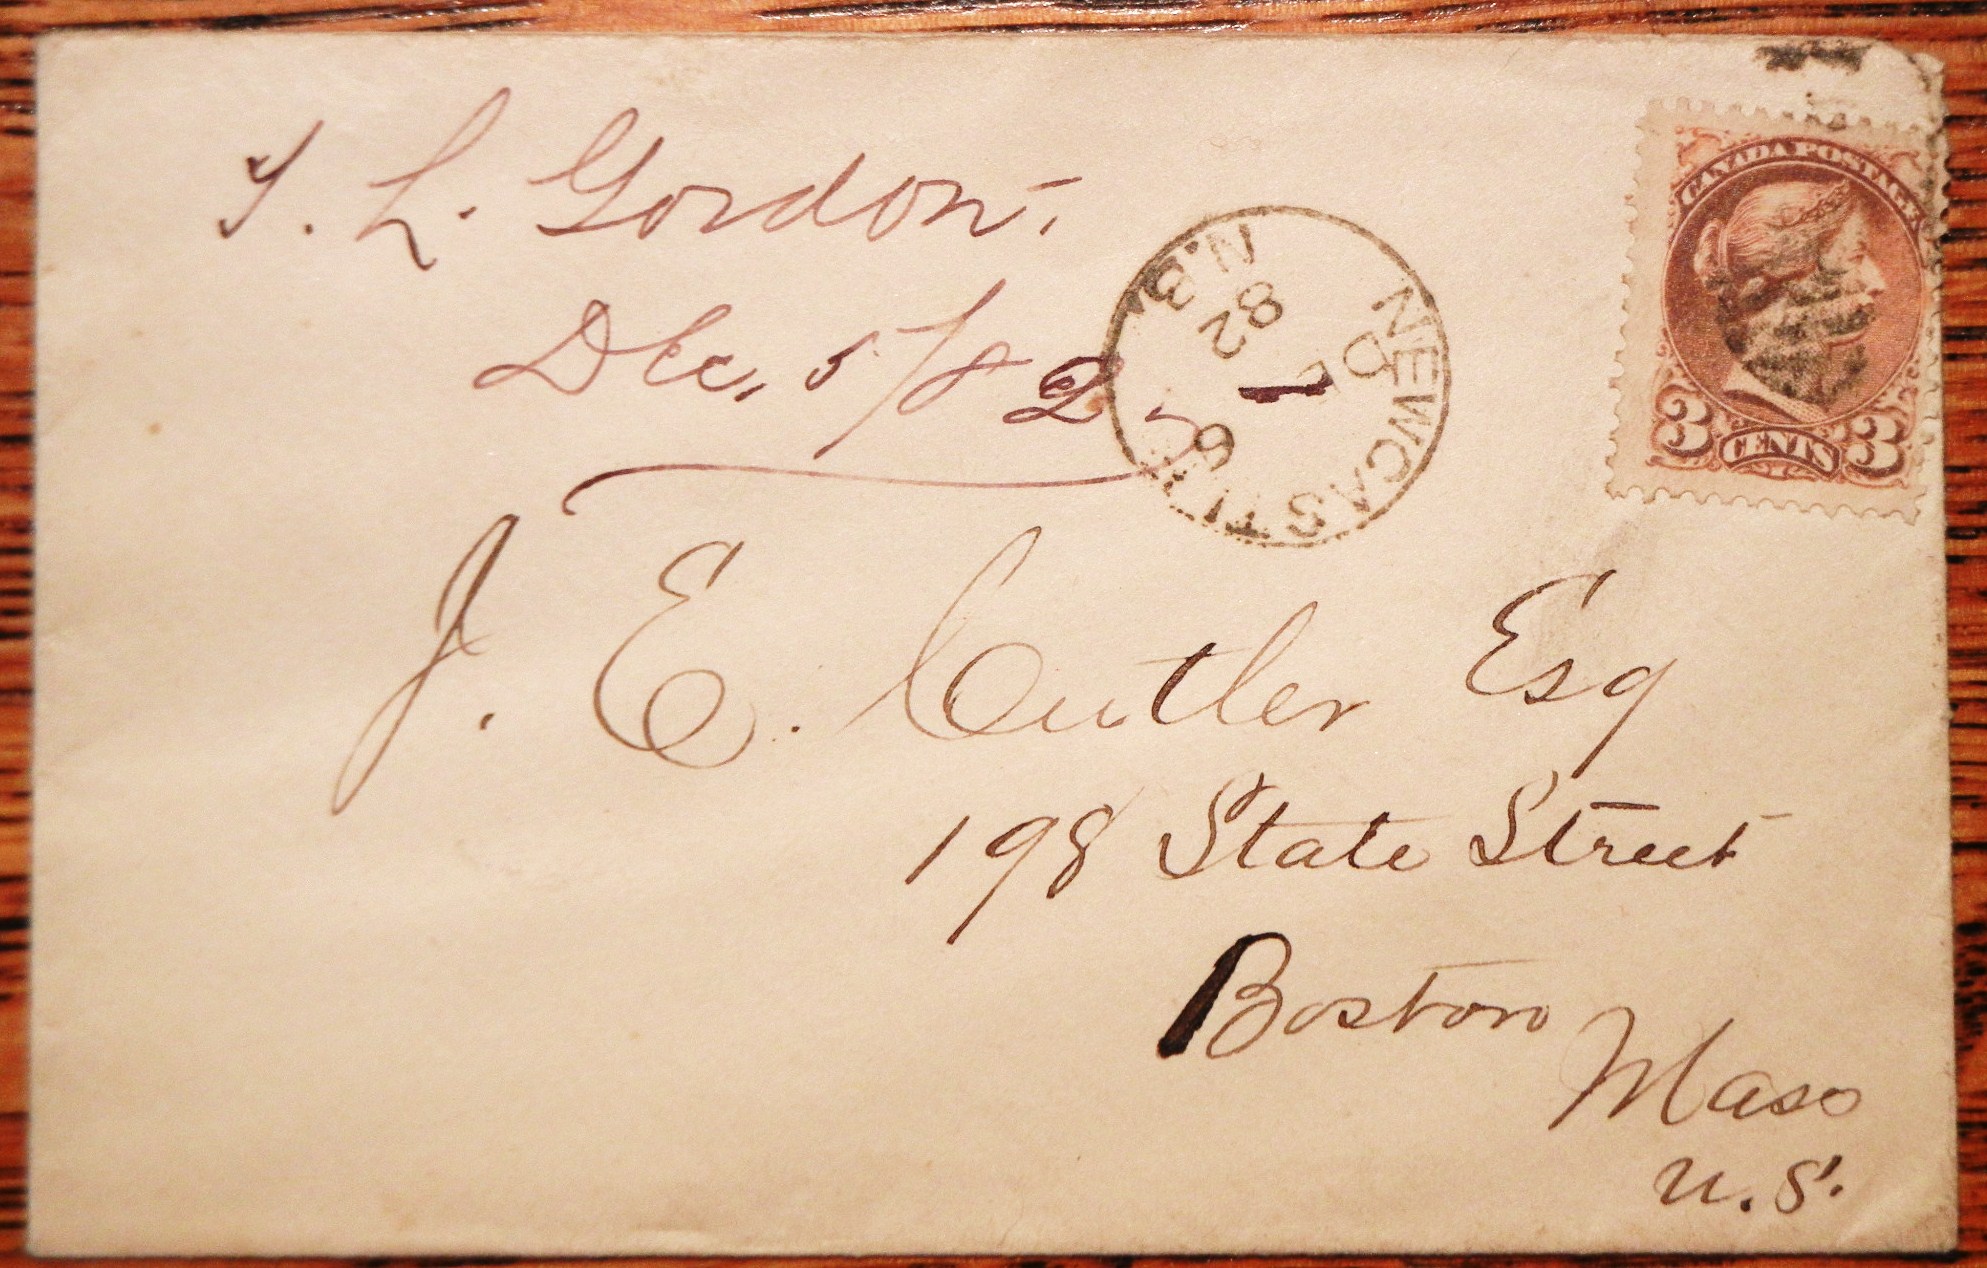 T. L. Gordon.
Dec. 5/82
NEWCASTLE
N.B.
6
82
CANADA POSTAGE
3 CENTS 3
J. E. Cutler Esq
198 State Street
Boston
Mass
U.S.